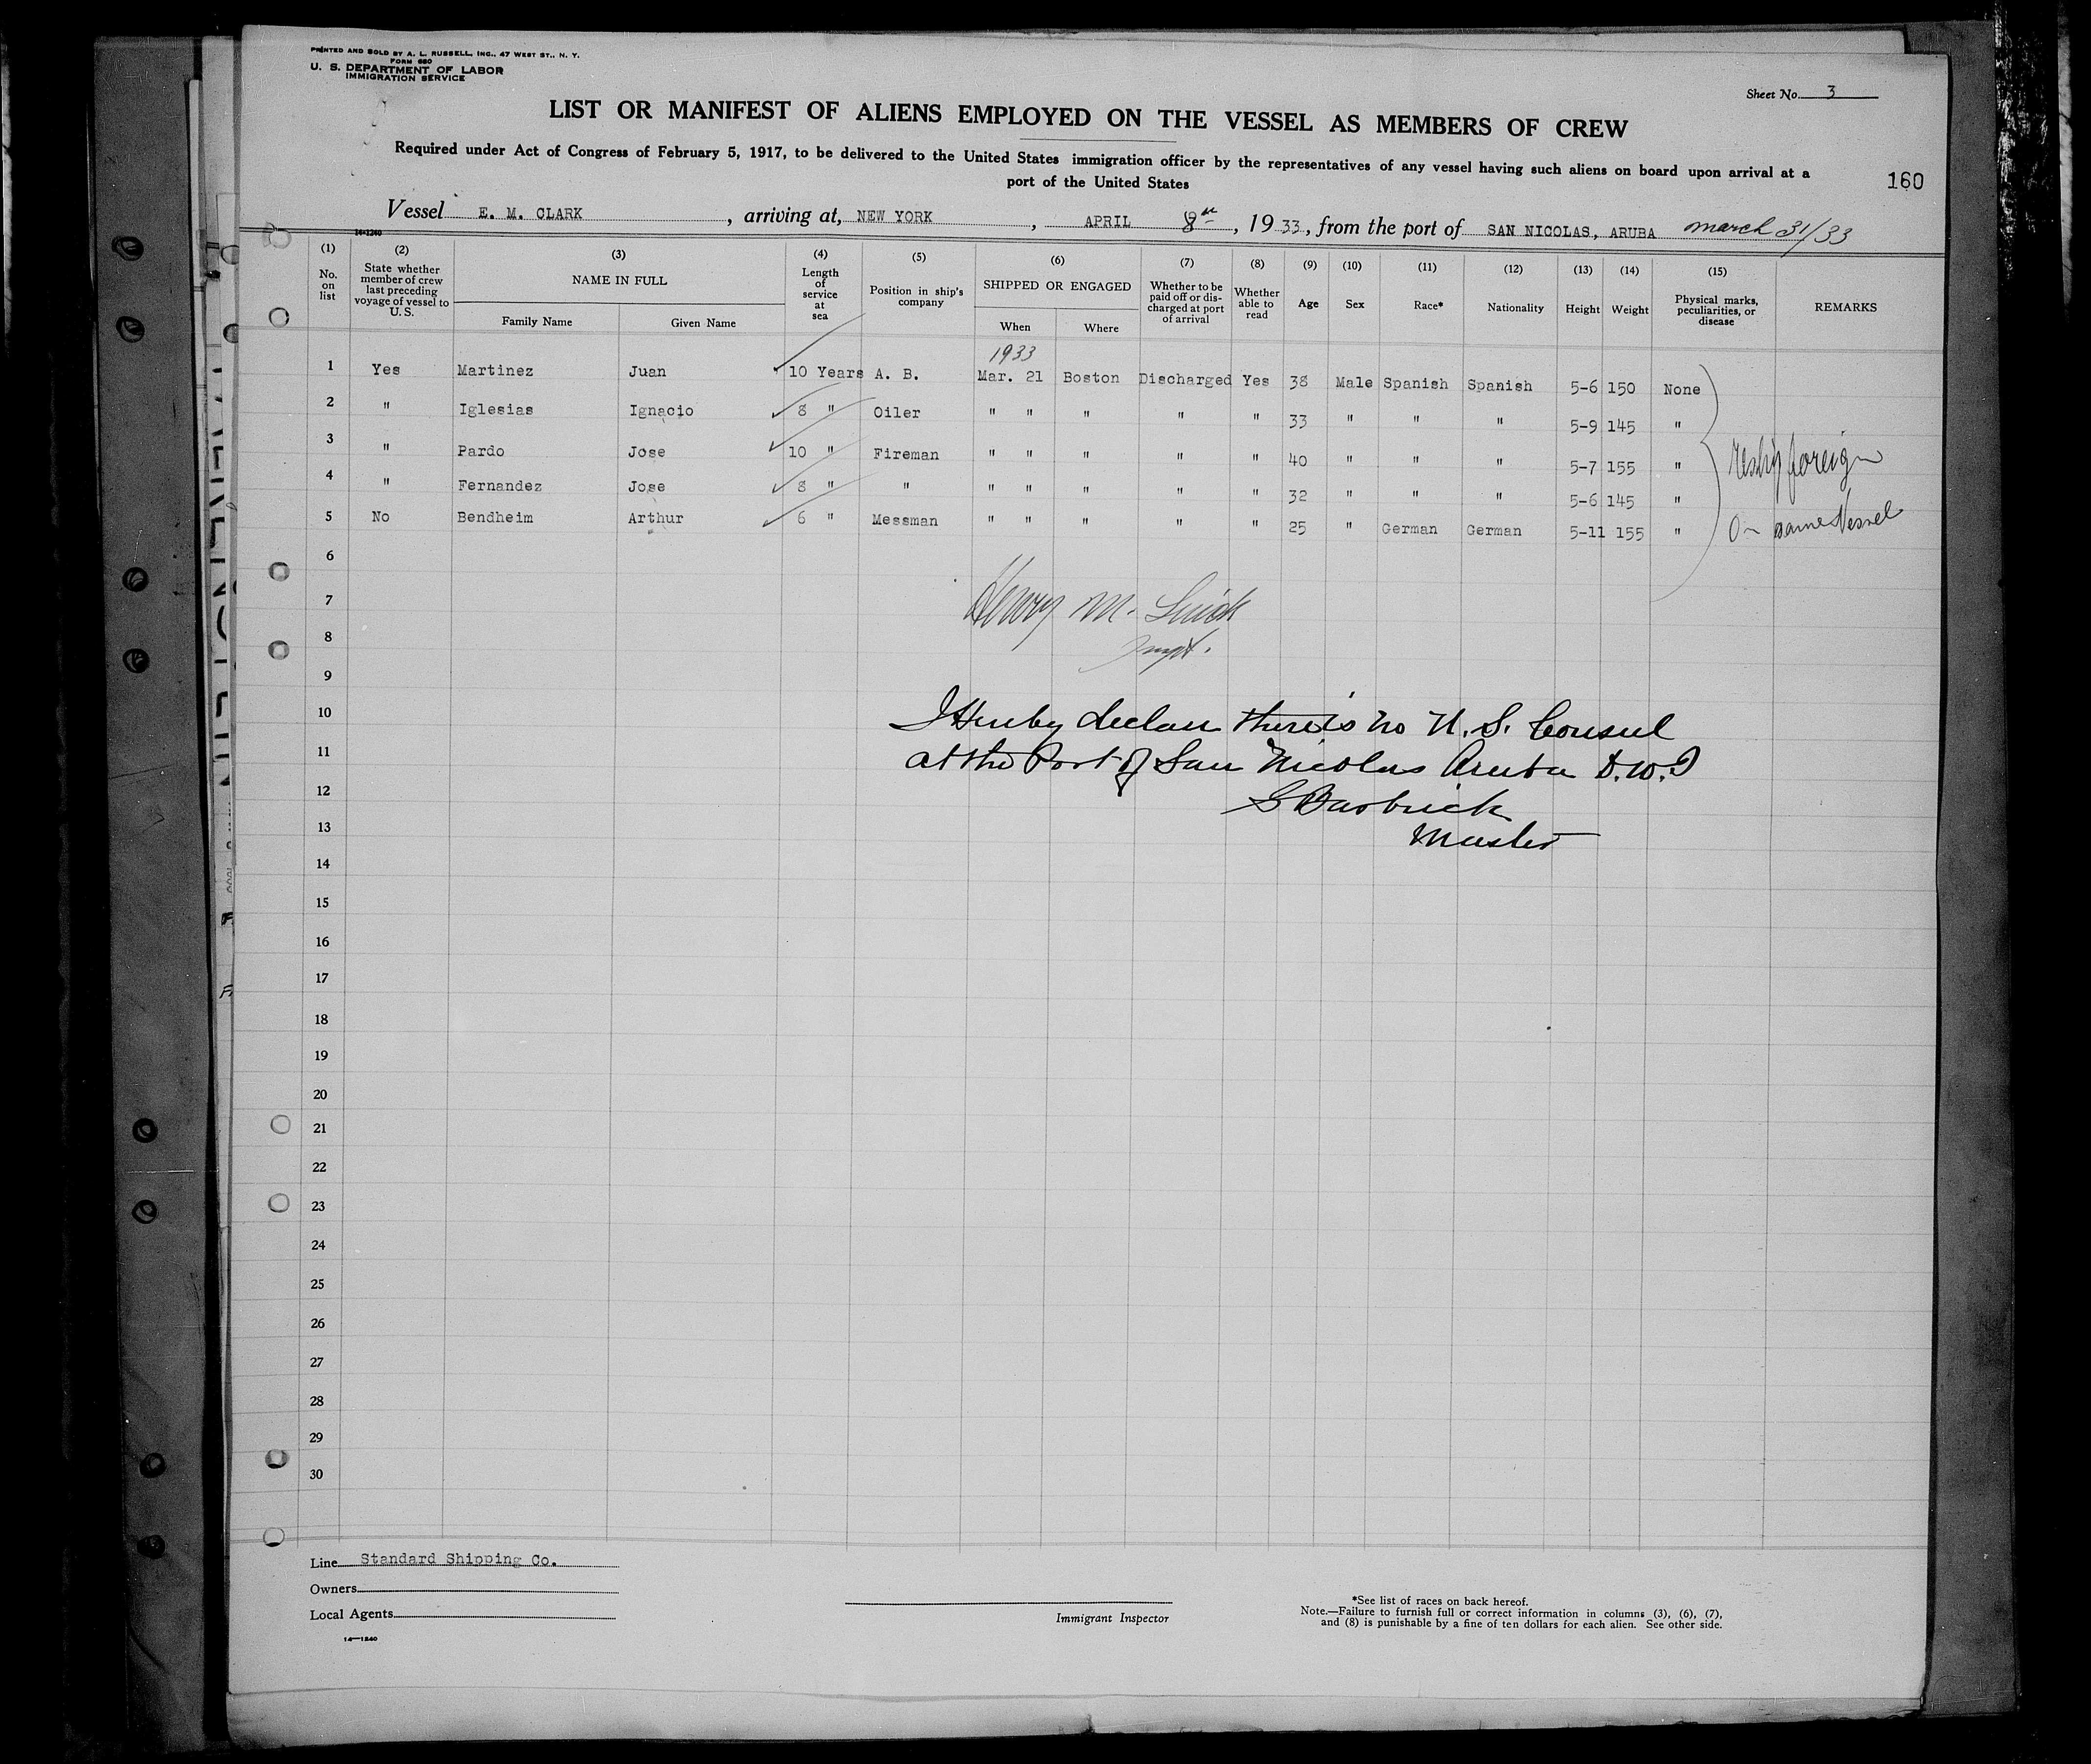 PRINTED AND SOLD BY A. L. RUSSELL, INC., 47 WEST ST., N. Y.
FORM 680
U. S. DEPARTMENT OF LABOR
IMMIGRATION SERVICE
Sheet No. 3
LIST OR MANIFEST OF ALIENS EMPLOYED ON THE VESSEL AS MEMBERS OF CREW
Required under Act of Congress of February 5, 1917, to be delivered to the United States immigration officer by the representatives of any vessel having such aliens on board upon arrival at a
port of the United States
160
Vessel E. M. CLARK, arriving at, NEW YORK, APRIL 8th, 1933, from the port of SAN NICOLAS, ARUBA march 31/33
14-1240
(1) (2) (3) (4) (5) (6) (7) (8) (9) (10) (11) (12) (13) (14) (15)
No. on list State whether member of crew last preceding voyage of vessel to U. S. NAME IN FULL Family Name Given Name Length of service at sea Position in ship's company SHIPPED OR ENGAGED When Where Whether to be paid off or discharged at port of arrival Whether able to read Age Sex Race* Nationality Height Weight Physical marks, peculiarities, or disease REMARKS
1933
1 Yes Martinez Juan 10 Years A. B. Mar. 21 Boston Discharged Yes 38 Male Spanish Spanish 5-6 150 None
2 " Iglesias Ignacio 8 " Oiler " " " " " 33 " " " 5-9 145 "
3 " Pardo Jose 10 " Fireman " " " " " 40 " " " 5-7 155 "
4 " Fernandez Jose 8 " " " " " " " 32 " " " 5-6 145 "
5 No Bendheim Arthur 6 " Messman " " " " " 25 " German German 5-11 155 "
Reship foreign
On same Vessel
6
7
8
9
10
11
12
13
14
15
16
17
18
19
20
21
22
23
24
25
26
27
28
29
30
Henry M.
Inspt.
I Hereby declare there is no U. S. Consul
at the Port of San Nicolas Aruba D.W.I
Master
Line Standard Shipping Co.
Owners
Local Agents
14-1240
Immigrant Inspector
*See list of races on back hereof.
Note.—Failure to furnish full or correct information in columns (3), (6), (7),
and (8) is punishable by a fine of ten dollars for each alien. See other side.